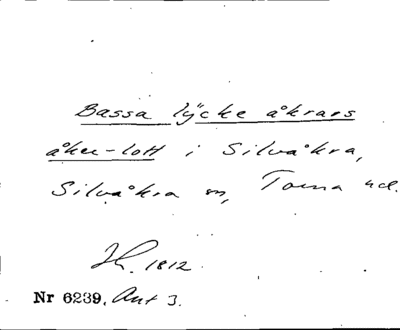 Bassa lycke åkrars
åker-lott i Silvåkra,
Silvåkra sn, Torna hd.
Jh. 1812.
Nr 6239. Ant 3.